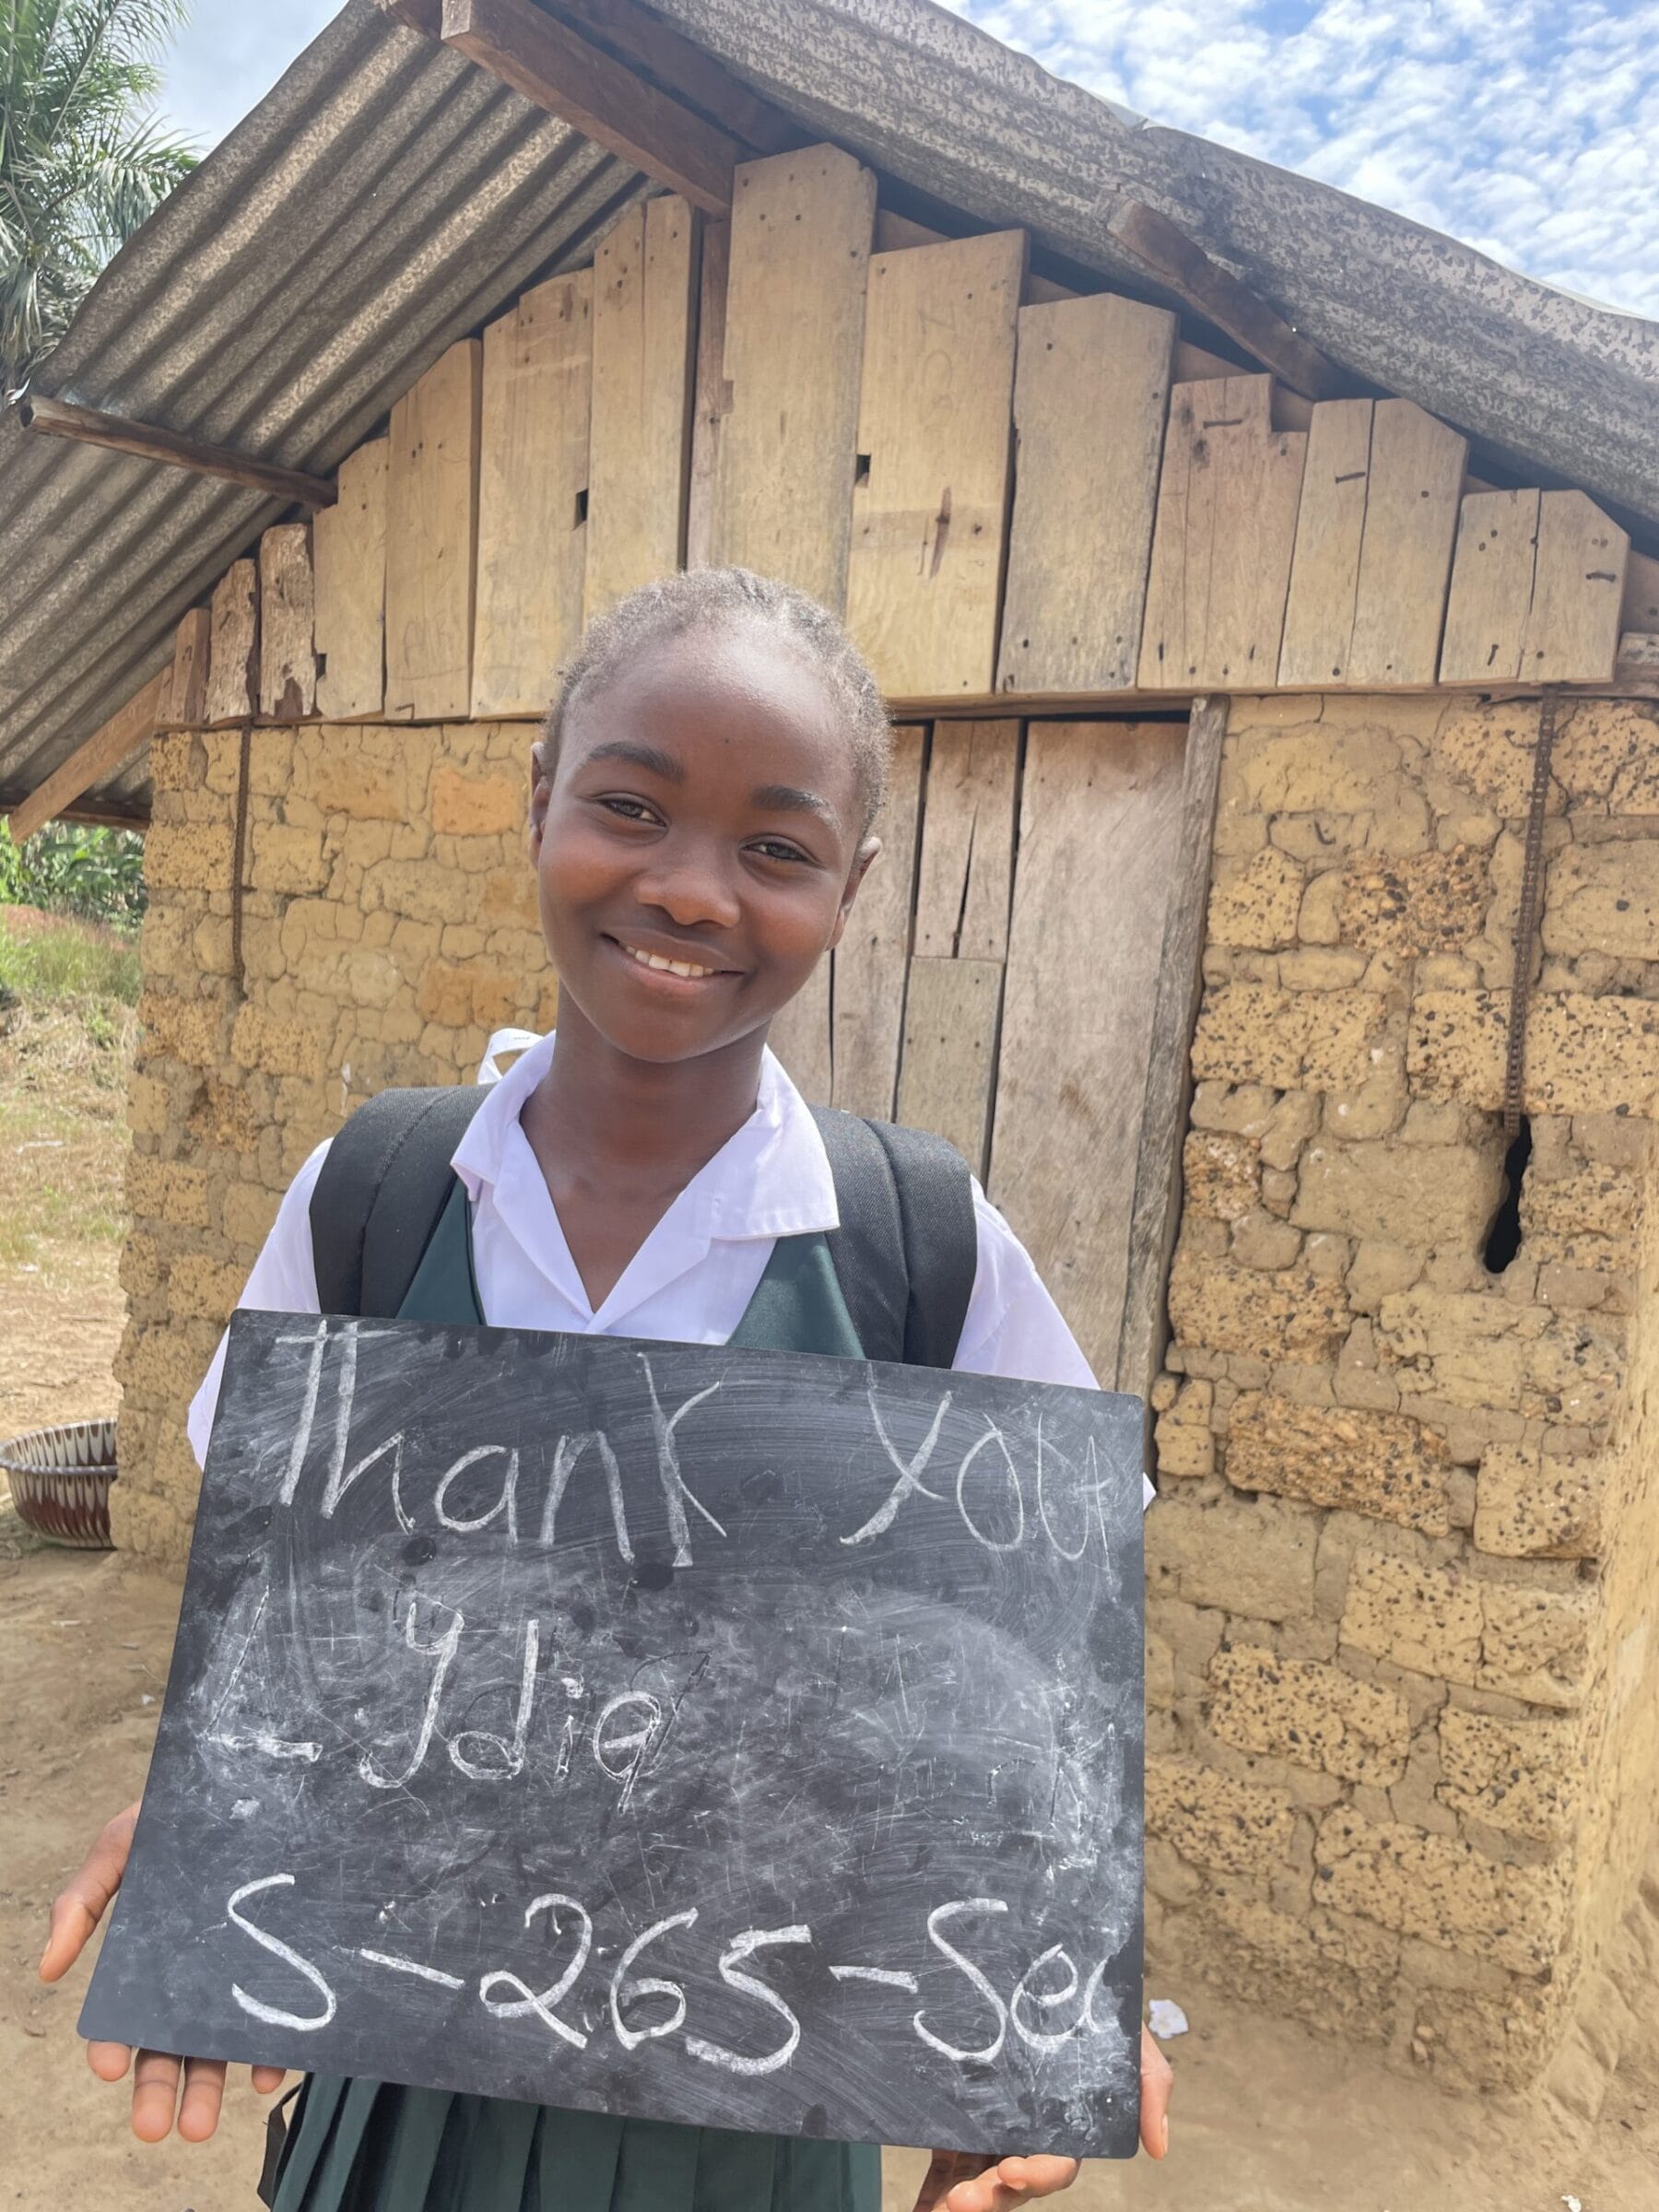 Thank You
Lydia
S-265-Sec